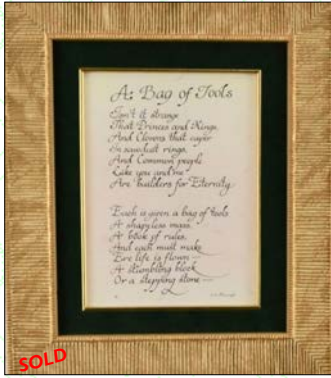 A Bag of Tools
Isn't it strange
That Princes and Kings,
And Clowns that caper
In sawdust rings,
And Common people
Like you and me
Are builders for Eternity.
Each is given a bag of tools
A shapeless mass,
A book of rules,
And each must make
Ere life is flown—
A stumbling block
Or a stepping stone—
SOLD